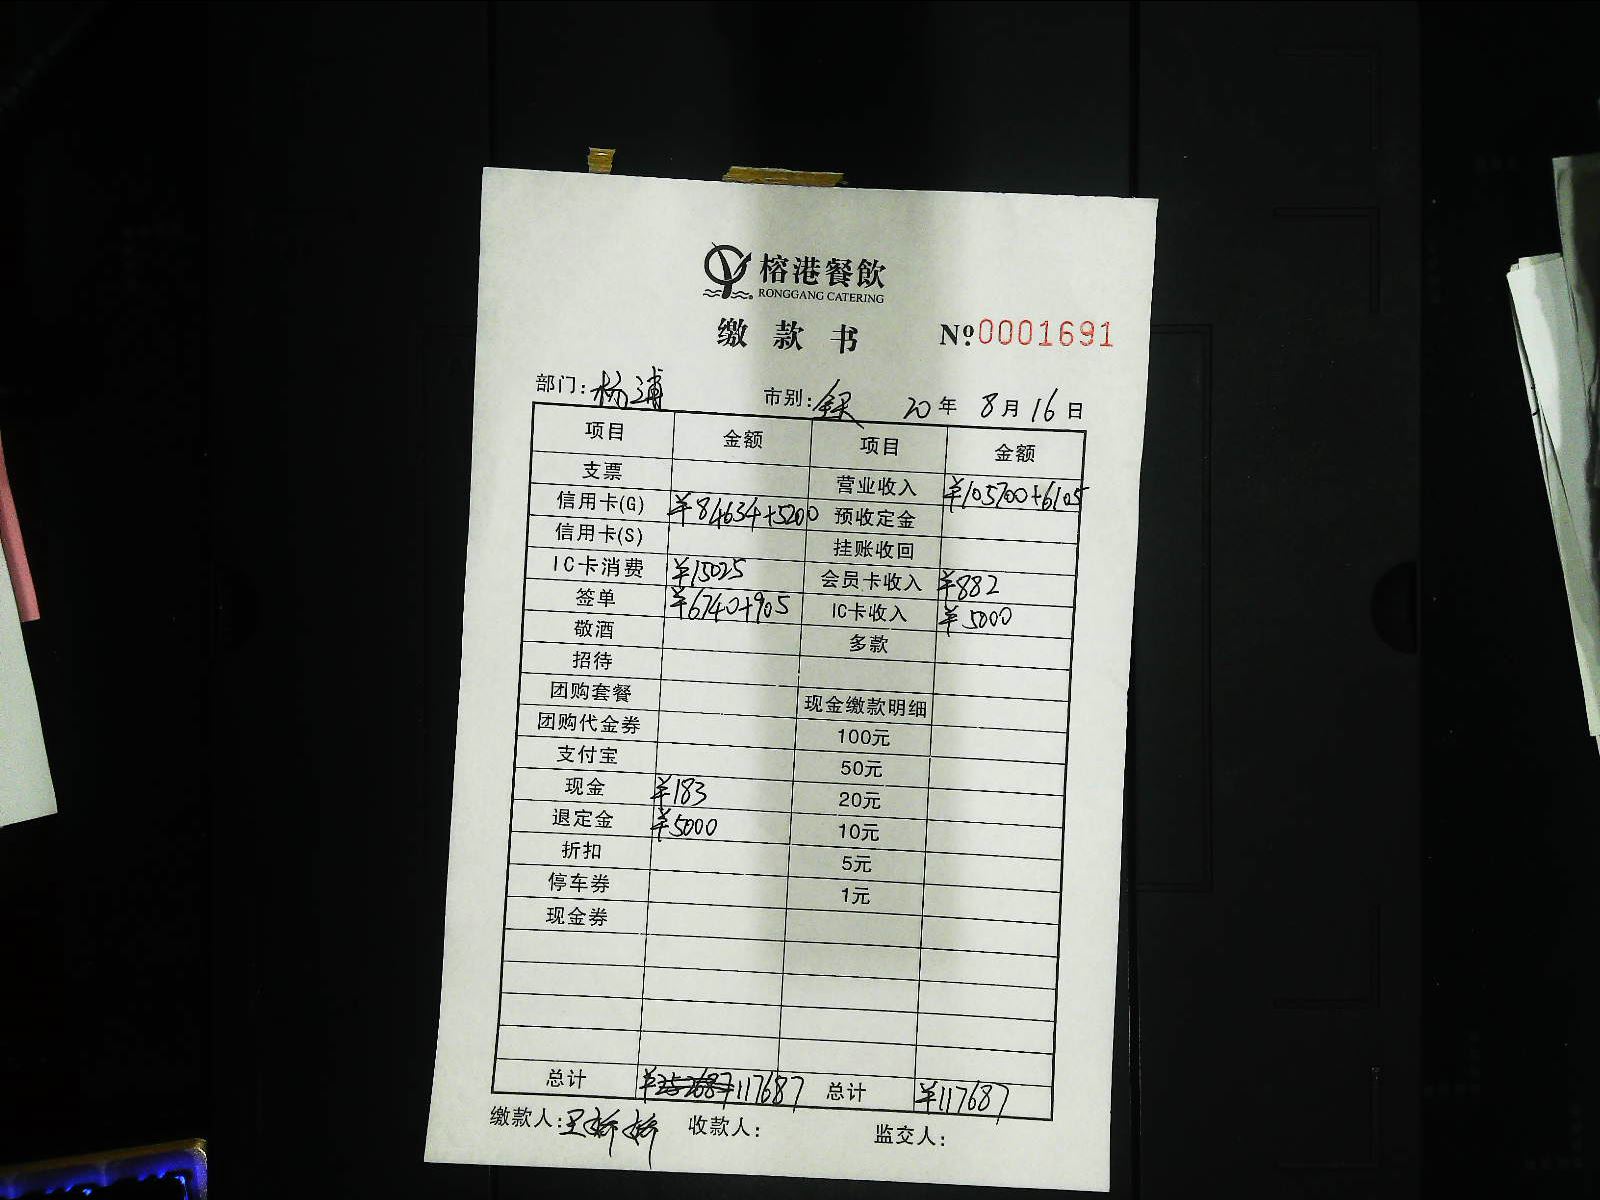 榕港餐飲
RONGGANG CATERING
缴款书 Nº:0001691
部门:杨浦 市别:银 20年 8月16日
项目 金额 项目 金额
支票 营业收入 ¥105700+6105
信用卡(G) ¥84634+5200 预收定金
信用卡(S) 挂账收回
IC卡消费 ¥15025 会员卡收入 ¥882
签单 ¥6740+905 IC卡收入 ¥5000
敬酒 多款
招待
团购套餐 现金缴款明细
团购代金券 100元
支付宝 50元
现金 ¥183 20元
退定金 ¥5000 10元
折扣 5元
停车券 1元
现金券
总计 ¥117687 总计 ¥117687
缴款人:王娇娇 收款人: 监交人: